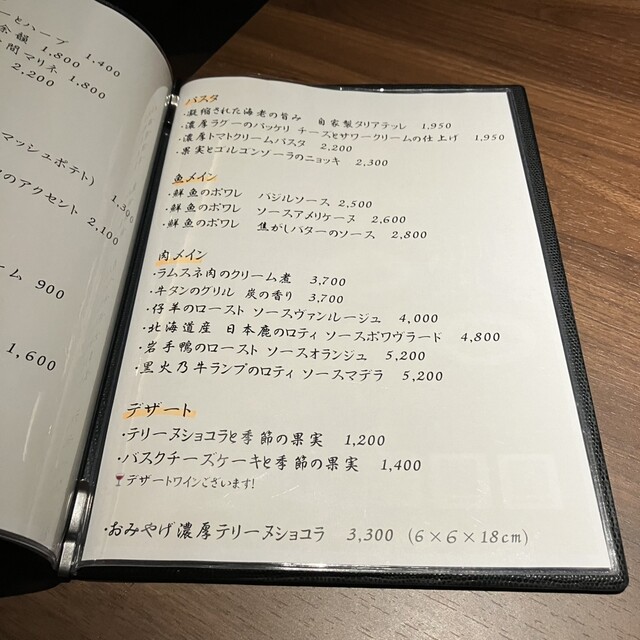 ーとハーブ 1,400
余韻 1,800
間マリネ 1,800
2,200
マッシュポテト)
1,300
のアクセント 2,100
ーム 900
1,600
パスタ
・凝縮された海老の旨み 自家製タリアテッレ 1,950
・濃厚ラグーのパッケリ チーズとサワークリームの仕上げ 1,950
・濃厚トマトクリームパスタ 2,200
・果実とゴルゴンゾーラのニョッキ 2,300
魚メイン
・鮮魚のポワレ バジルソース 2,500
・鮮魚のポワレ ソースアメリケーヌ 2,600
・鮮魚のポワレ 焦がしバターのソース 2,800
肉メイン
・ラムスネ肉のクリーム煮 3,700
・牛タンのグリル 炭の香り 3,700
・仔羊のロースト ソースヴァンルージュ 4,000
・北海道産 日本鹿のロティ ソースポワヴラード 4,800
・岩手鴨のロースト ソースオランジュ 5,200
・黒火乃牛ランプのロティ ソースマデラ 5,200
デザート
・テリーヌショコラと季節の果実 1,200
・バスクチーズケーキと季節の果実 1,400
デザートワインございます!
・おみやげ濃厚テリーヌショコラ 3,300 (6×6×18cm)